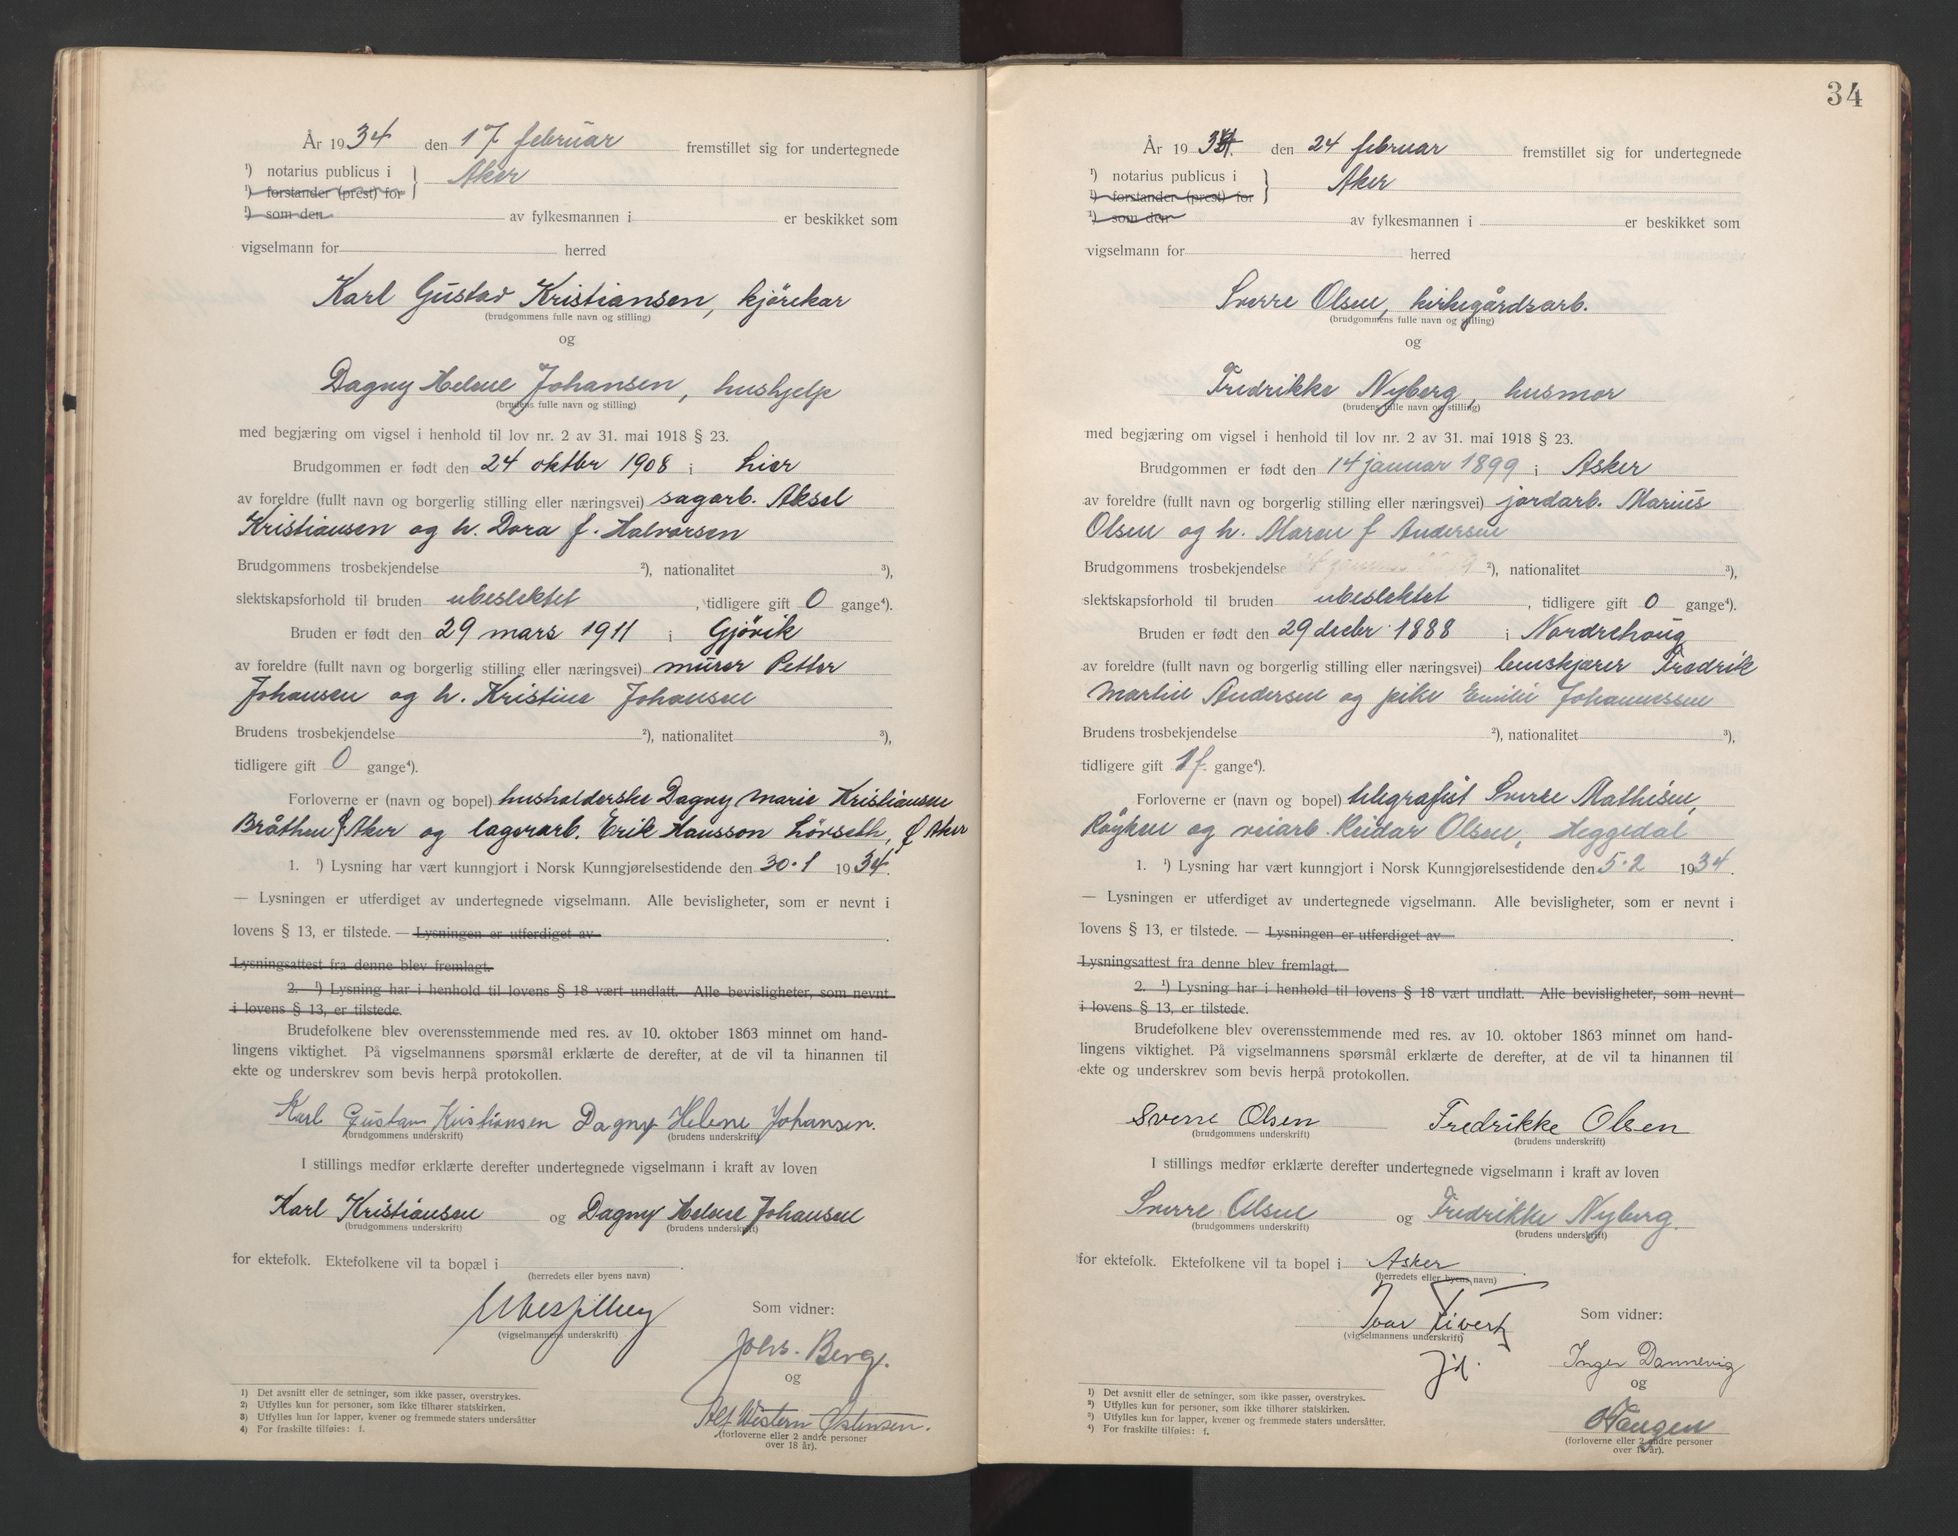 År 1934 den 17 februar fremstillet sig for undertegnede
¹) notarius publicus i } Aker
¹) forstander (prest) for
¹) som den av fylkesmannen i er beskikket som
vigselmann for herred
Karl Gustav Kristiansen, kjörekar
(brudgommens fulle navn og stilling)
og
Dagny Helene Johansen, hushjelp
(brudens fulle navn og stilling)
med begjæring om vigsel i henhold til lov nr. 2 av 31. mai 1918 § 23.
Brudgommen er født den 24 oktbr 1908 i Lier
av foreldre (fullt navn og borgerlig stilling eller næringsvei) sagarb. Aksel
Kristiansen og h. Dora f. Halvorsen
Brudgommens trosbekjendelse ²), nationalitet ³),
slektskapsforhold til bruden ubeslektet, tidligere gift 0 gange⁴).
Bruden er født den 29 mars 1911 i Gjövik
av foreldre (fullt navn og borgerlig stilling eller næringsvei) murer Petter
Johansen og h. Kristine Johansen
Brudens trosbekjendelse ²), nationalitet ³),
tidligere gift 0 gange⁴).
Forloverne er (navn og bopel) husholderske Dagny Marie Kristiansen
Bråthen Ø Aker og lagerarb. Erik Hansson Lövseth, Ø Aker
1. ¹) Lysning har vært kunngjort i Norsk Kunngjørelsestidende den 30.1 1934.
— Lysningen er utferdiget av undertegnede vigselmann. Alle bevisligheter, som er nevnt i
lovens § 13, er tilstede. — Lysningen er utferdiget av
Lysningsattest fra denne blev fremlagt.
2. ¹) Lysning har i henhold til lovens § 18 vært undlatt. Alle bevisligheter, som nevnt
i lovens § 13, er tilstede.
Brudefolkene blev overensstemmende med res. av 10. oktober 1863 minnet om hand-
lingens viktighet. På vigselmannens spørsmål erklærte de derefter, at de vil ta hinannen til
ekte og underskrev som bevis herpå protokollen.
Karl Gustav Kristiansen Dagny Helene Johansen.
(brudgommens underskrift) (brudens underskrift)
I stillings medfør erklærte derefter undertegnede vigselmann i kraft av loven
Karl Kristiansen og Dagny Helene Johansen
(brudgommens underskrift) (brudens underskrift)
for ektefolk. Ektefolkene vil ta bopæl i
(herredets eller byens navn)
Som vidner:
(vigselmannens underskrift)
Johs. Berg.
og
Alf Western Østensen.
(forloverne eller 2 andre personer
over 18 år).
¹) Det avsnitt eller de setninger, som ikke passer, overstrykes.
²) Utfylles kun for personer, som ikke tilhører statskirken.
³) Utfylles kun for lapper, kvener og fremmede staters undersåtter
⁴) For fraskilte tilføies: f.
34
År 1934. den 24 februar fremstillet sig for undertegnede
¹) notarius publicus i } Aker
¹) forstander (prest) for
¹) som den av fylkesmannen i er beskikket som
vigselmann for herred
Sverre Olsen, kirkegårdsarb.
(brudgommens fulle navn og stilling)
og
Fredrikke Nyberg, husmor
(brudens fulle navn og stilling)
med begjæring om vigsel i henhold til lov nr. 2 av 31. mai 1918 § 23.
Brudgommen er født den 14 januar 1899 i Asker
av foreldre (fullt navn og borgerlig stilling eller næringsvei) jordarb. Marius
Olsen og h. Maren f Andersen
Brudgommens trosbekjendelse ²), nationalitet ³),
slektskapsforhold til bruden ubeslektet, tidligere gift 0 gange⁴).
Bruden er født den 29 decbr. 1888 i Nordrehoug
av foreldre (fullt navn og borgerlig stilling eller næringsvei) Fredrik
Martin Andersen og pike Emilie Johannessen
Brudens trosbekjendelse ²), nationalitet ³),
tidligere gift 1f. gange⁴).
Forloverne er (navn og bopel) telegrafist Sverre Mathisen,
Röyken og veiarb. Reidar Olsen, Heggedal
1. ¹) Lysning har vært kunngjort i Norsk Kunngjørelsestidende den 5.2 1934.
— Lysningen er utferdiget av undertegnede vigselmann. Alle bevisligheter, som er nevnt i
lovens § 13, er tilstede. — Lysningen er utferdiget av
Lysningsattest fra denne blev fremlagt.
2. ¹) Lysning har i henhold til lovens § 18 vært undlatt. Alle bevisligheter, som nevnt
i lovens § 13, er tilstede.
Brudefolkene blev overensstemmende med res. av 10. oktober 1863 minnet om hand-
lingens viktighet. På vigselmannens spørsmål erklærte de derefter, at de vil ta hinannen til
ekte og underskrev som bevis herpå protokollen.
Sverre Olsen Fredrikke Olsen
(brudgommens underskrift) (brudens underskrift)
I stillings medfør erklærte derefter undertegnede vigselmann i kraft av loven
Sverre Olsen og Fredrikke Nyberg.
(brudgommens underskrift) (brudens underskrift)
for ektefolk. Ektefolkene vil ta bopel i Asker
(herredets eller byens navn)
Ivar Som vidner:
(vigselmannens underskrift)
Inger Dannevig
og
(forloverne eller 2 andre personer
over 18 år).
¹) Det avsnitt eller de setninger, som ikke passer, overstrykes.
²) Utfylles kun for personer, som ikke tilhører statskirken.
³) Utfylles kun for lapper, kvener og fremmede staters undersåtter.
⁴) For fraskilte tilføies: f.